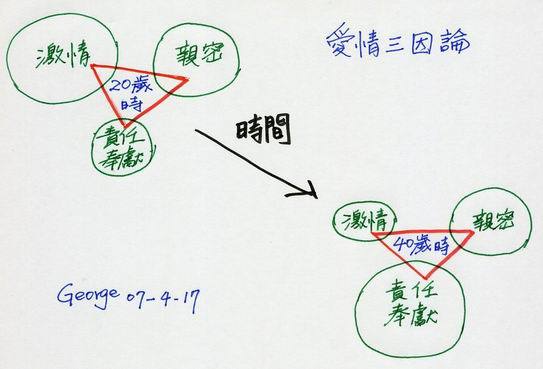 愛情三因論
激情
親密
20歲
時
責任
奉獻
時間
激情
親密
40歲時
責任
奉獻
George 07-4-17